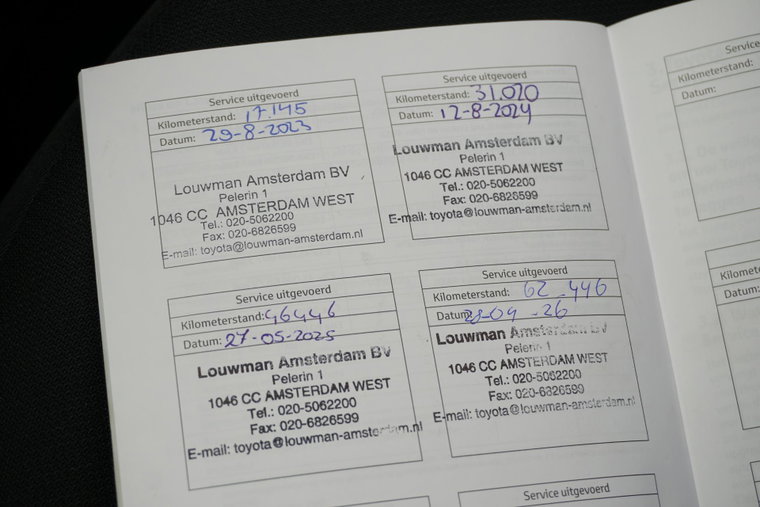 Service uitgevoerd
Kilometerstand: 17.145
Datum: 29-8-2023
Louwman Amsterdam BV
Pelerin 1
1046 CC AMSTERDAM WEST
Tel.: 020-5062200
Fax: 020-6826599
E-mail: toyota@louwman-amsterdam.nl
Service uitgevoerd
Kilometerstand: 31.020
Datum: 12-8-2024
Louwman Amsterdam BV
Pelerin 1
1046 CC AMSTERDAM WEST
Tel.: 020-5062200
Fax: 020-6826599
E-mail: toyota@louwman-amsterdam.nl
Service uitgevoerd
Kilometerstand: 46446
Datum: 27-05-2025
Louwman Amsterdam BV
Pelerin 1
1046 CC AMSTERDAM WEST
Tel.: 020-5062200
Fax: 020-6826599
E-mail: toyota@louwman-amsterdam.nl
Service uitgevoerd
Kilometerstand: 62-446
Louwman Amsterdam BV
Pelerin 1
1046 CC AMSTERDAM WEST
Tel.: 020-5062200
Fax: 020-6826599
E-mail: toyota@louwman-amsterdam.nl
Service uitgevoerd
Service
Kilometerstand:
Datum:
Kilomete
Datum: